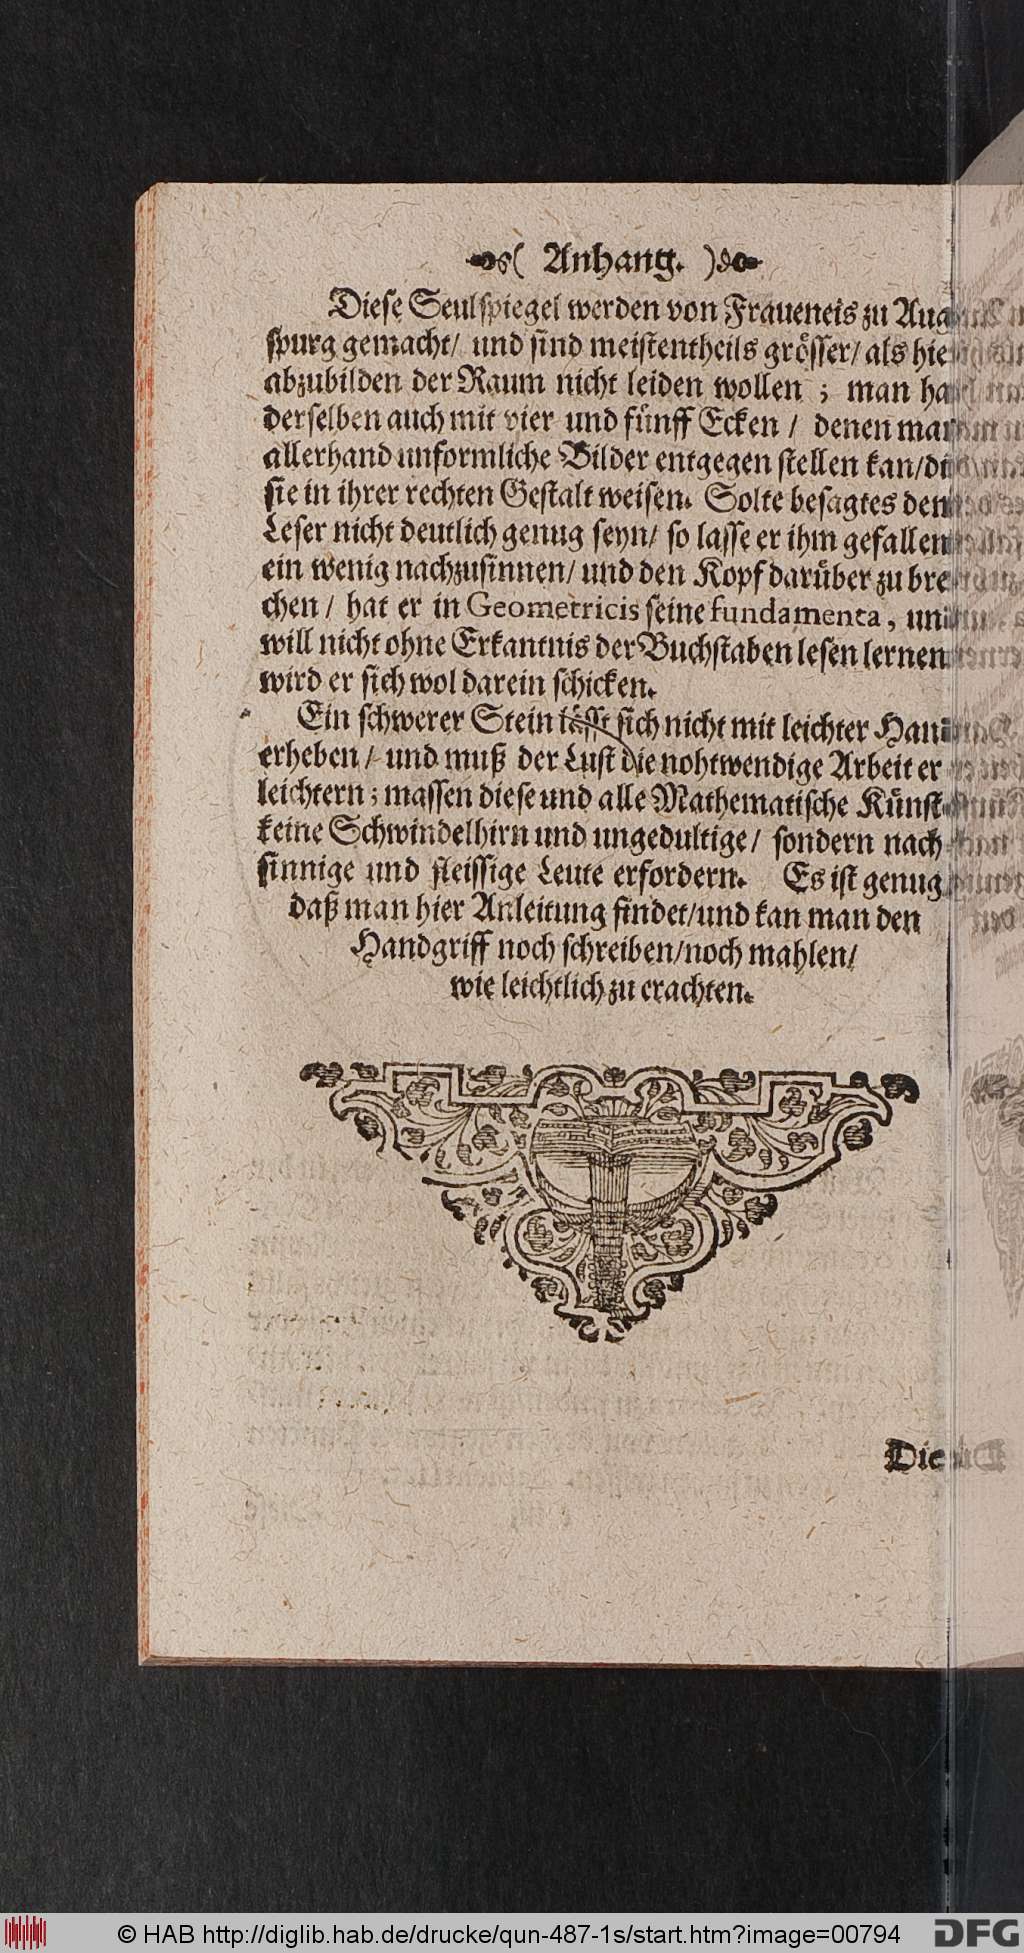 ( Anhang. )
Diese Seulspiegel werden von Fraueneis zu Aug
spurg gemacht/ und sind meistentheils grösser/ als hie
abzubilden der Raum nicht leiden wollen ; man ha
derselben auch mit vier und fünff Ecken / denen man
allerhand unformliche Bilder entgegen stellen kan/di
sie in ihrer rechten Gestalt weisen. Solte besagtes dem
Leser nicht deutlich genug seyn/ so lasse er ihm gefallen
ein wenig nachzusinnen/ und den Kopf darüber zu bre
chen / hat er in Geometricis seine fundamenta, un
will nicht ohne Erkantnis der Buchstaben lesen lernen
wird er sich wol darein schicken.
Ein schwerer Stein lässt sich nicht mit leichter Han
erheben / und muß der Lust die nohtwendige Arbeit er
leichtern ; massen diese und alle Mathematische Künst
keine Schwindelhirn und ungedultige/ sondern nach
sinnige und fleissige Leute erfordern. Es ist genug
daß man hier Anleitung findet/und kan man den
Handgriff noch schreiben/noch mahlen/
wie leichtlich zu erachten.
Die
© HAB http://diglib.hab.de/drucke/qun-487-1s/start.htm?image=00794
DFG